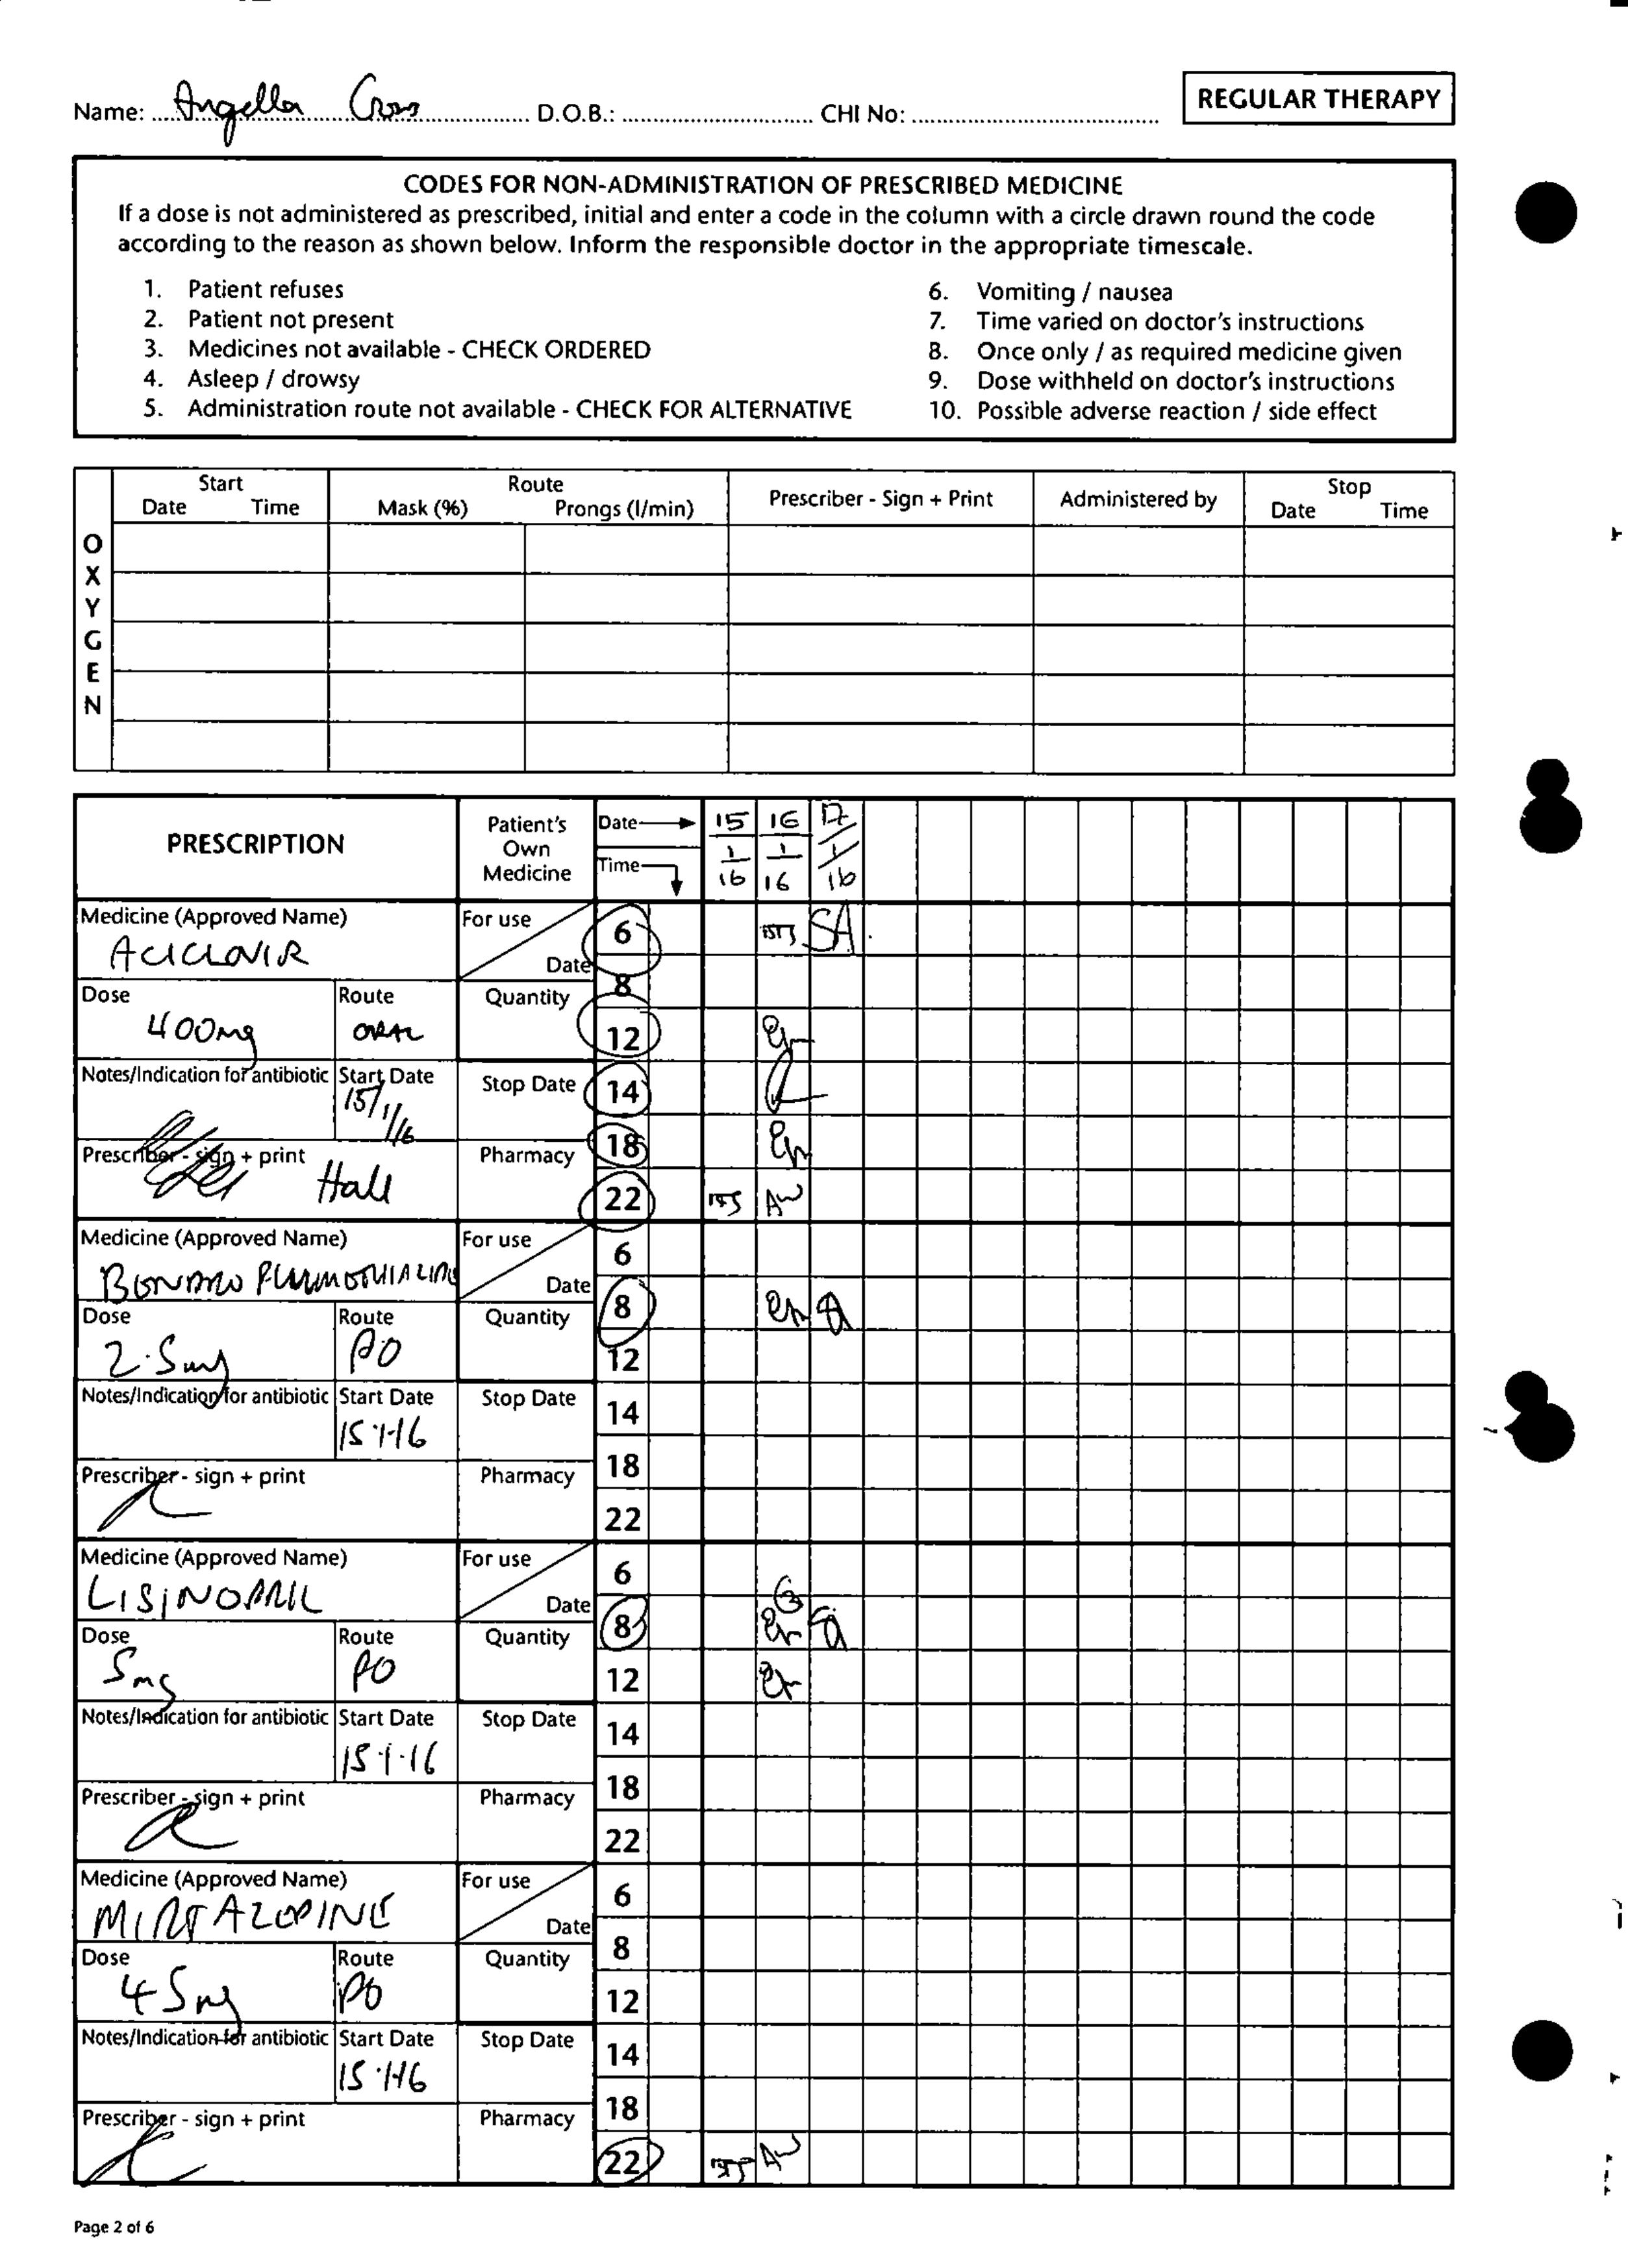 Name: Angella Cross D.O.B.: CHI No: REGULAR THERAPY
CODES FOR NON-ADMINISTRATION OF PRESCRIBED MEDICINE
If a dose is not administered as prescribed, initial and enter a code in the column with a circle drawn round the code
according to the reason as shown below. Inform the responsible doctor in the appropriate timescale.
1. Patient refuses
2. Patient not present
3. Medicines not available - CHECK ORDERED
4. Asleep / drowsy
5. Administration route not available - CHECK FOR ALTERNATIVE
6. Vomiting / nausea
7. Time varied on doctor's instructions
8. Once only / as required medicine given
9. Dose withheld on doctor's instructions
10. Possible adverse reaction / side effect
OXYGEN
Start Route Prescriber - Sign + Print Administered by Stop
Date Time Mask (%) Prongs (l/min) Date Time
PRESCRIPTION
Patient's
Own
Medicine
Date
Time
15 16 17
1 1 1
16 16 16
Medicine (Approved Name) For use 6 SA
ACICLOVIR Date
8
Dose Route Quantity
400mg ORAL 12
Notes/Indication for antibiotic Start Date Stop Date 14
15/1/16
Prescriber - sign + print Pharmacy 18
Hall
22 AW
Medicine (Approved Name) For use 6
Date
8
Dose Route Quantity
2.5mg PO 12
Notes/Indication for antibiotic Start Date Stop Date 14
15.1.16
18
Prescriber - sign + print Pharmacy
22
Medicine (Approved Name) For use 6
LISINOPRIL Date
8
Dose Route Quantity
5mg PO 12
Notes/Indication for antibiotic Start Date Stop Date 14
15.1.16
18
Prescriber - sign + print Pharmacy
22
Medicine (Approved Name) For use 6
MIRTAZOPINE Date
8
Dose Route Quantity
45mg PO 12
Notes/Indication for antibiotic Start Date Stop Date 14
15.1.16
18
Prescriber - sign + print Pharmacy
22 AW
Page 2 of 6